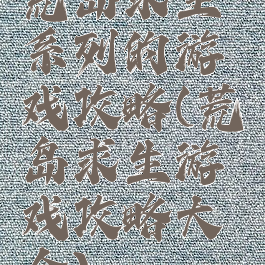 荒岛求生
系列的游
戏攻略(荒
岛求生游
戏攻略大
全)